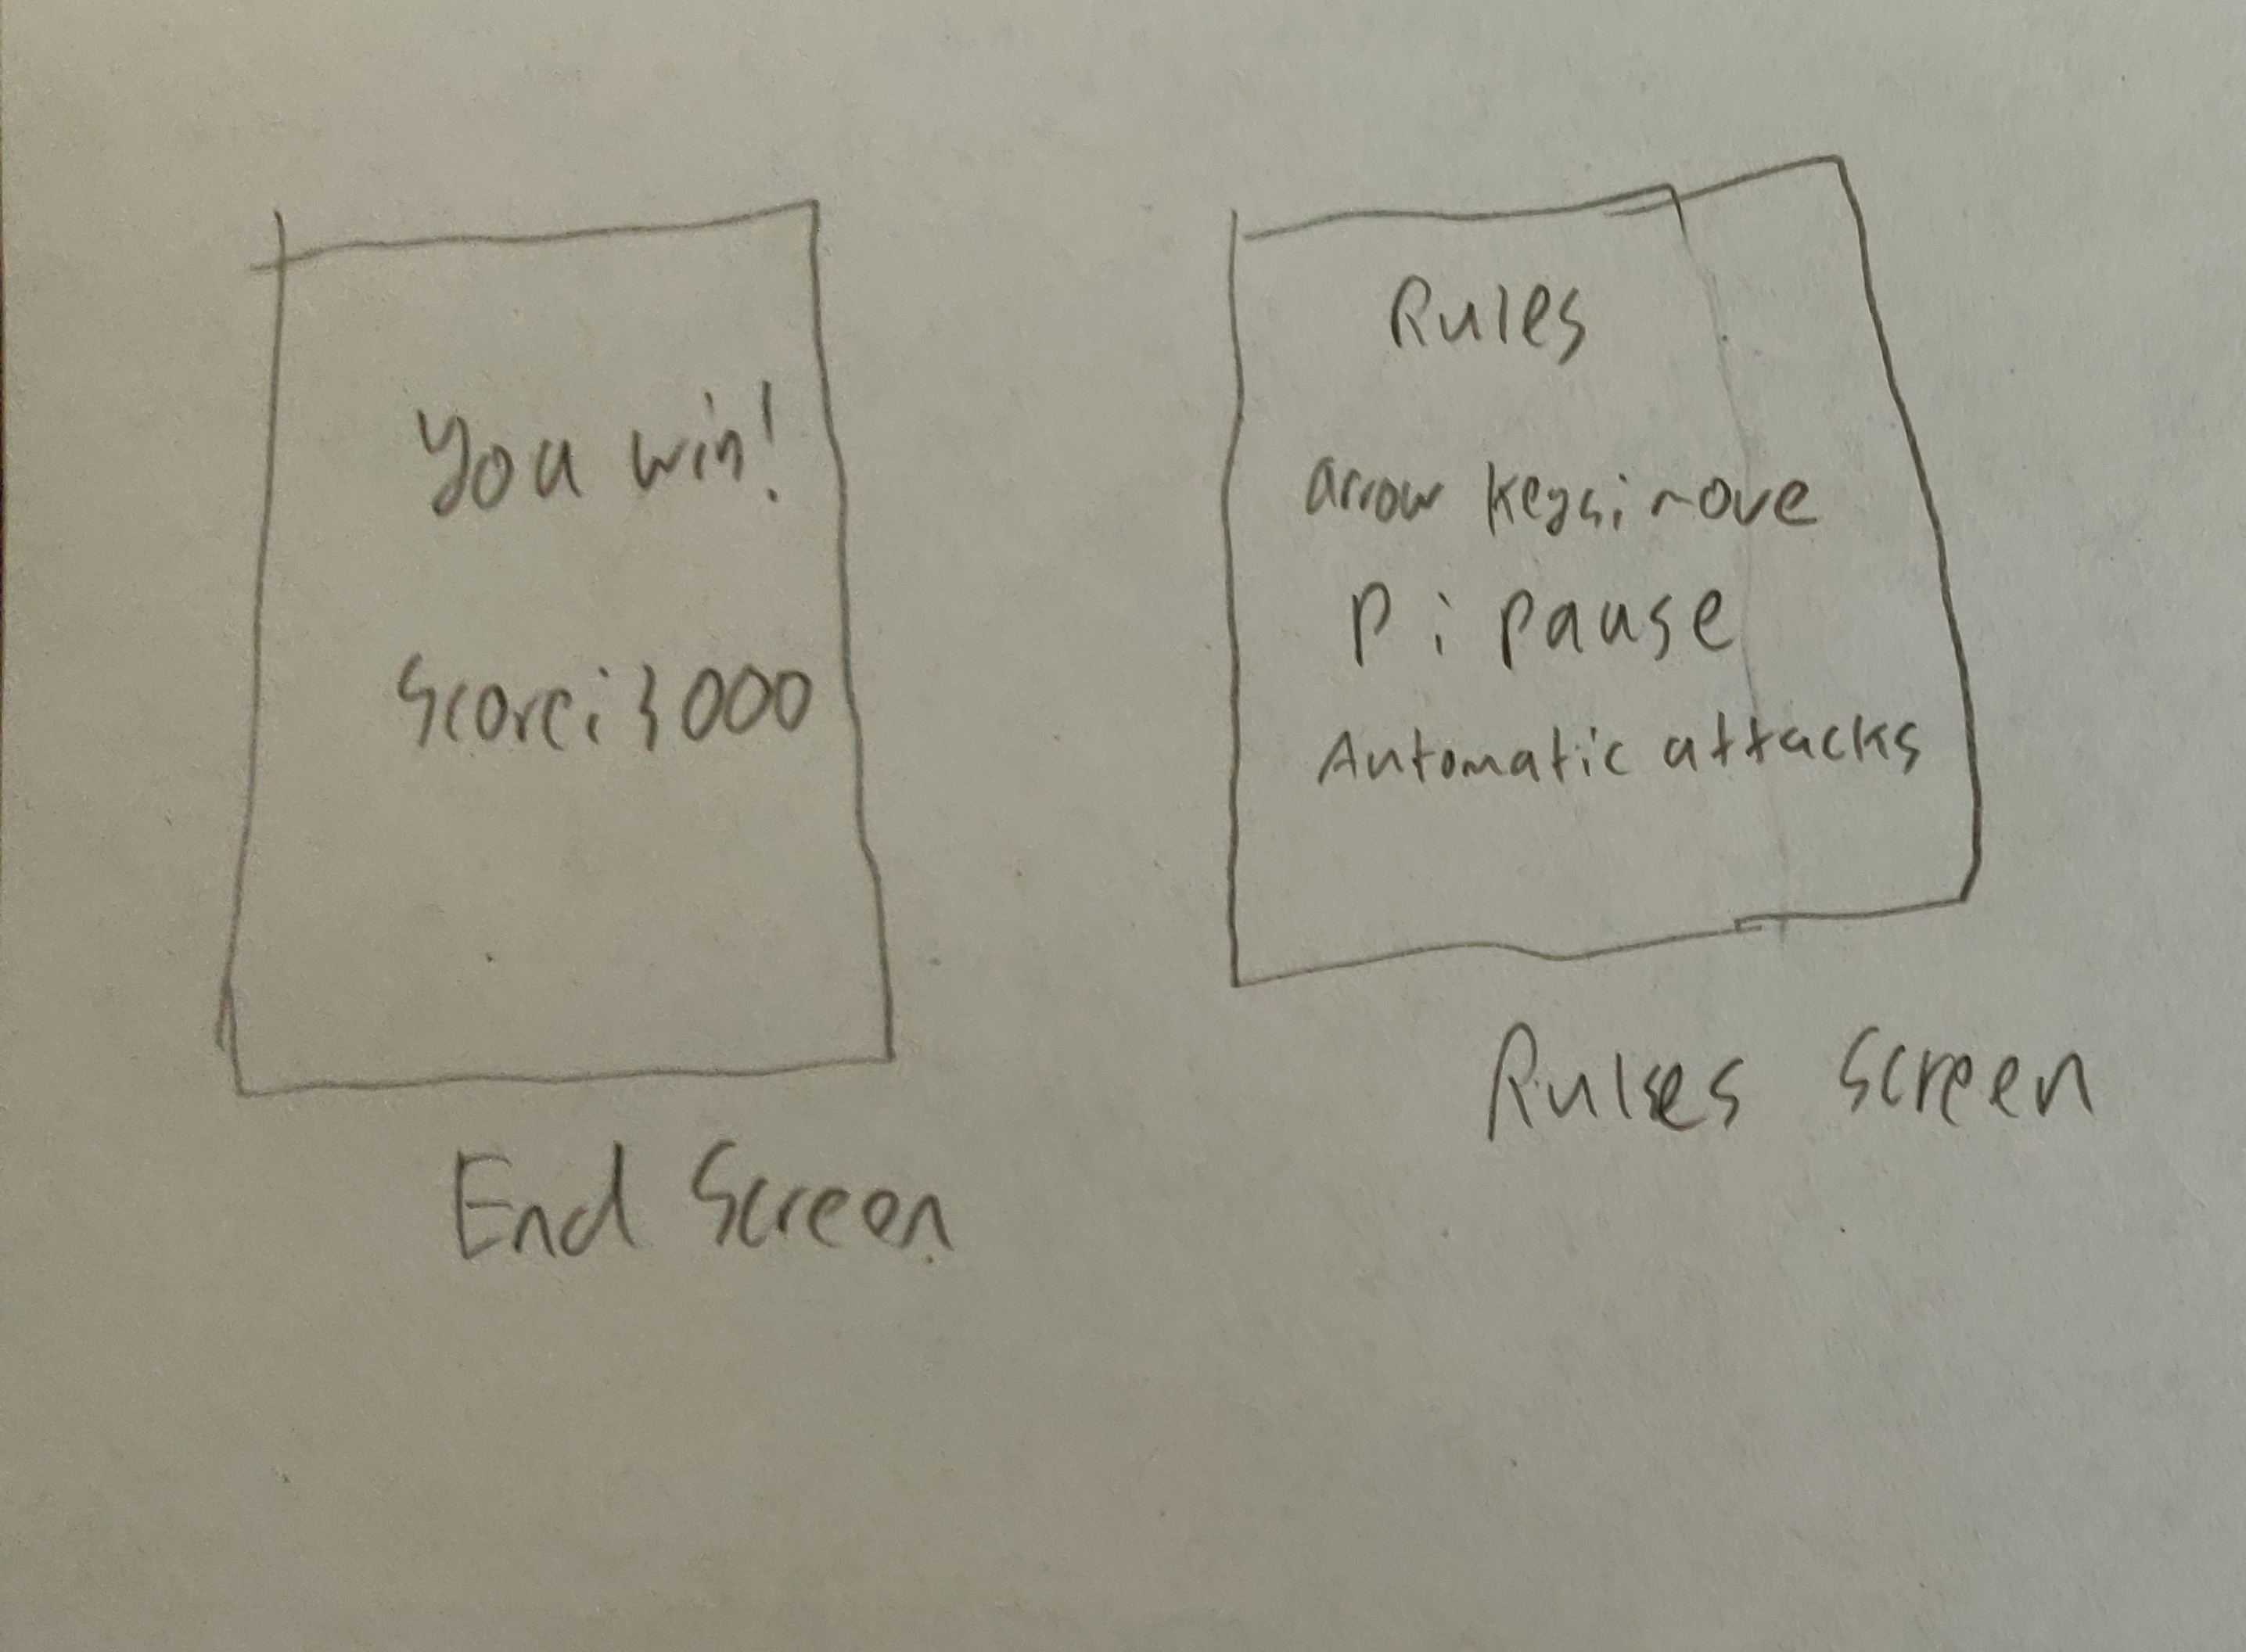 You win!
Score: 3000
End Screen
Rules
arrow keys: move
P: pause
Automatic attacks
Rules Screen